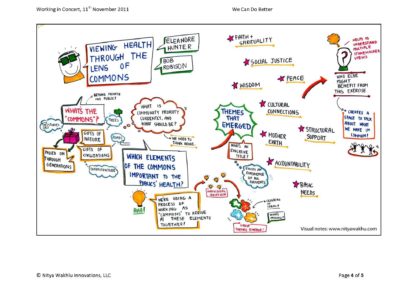 Working in Concert, 11th November 2011
We Can Do Better
VIEWING HEALTH
THROUGH THE
LENS OF
COMMONS
ELEANORE
HUNTER
BOB
ROBISON
BEYOND PRIVATE
AND PUBLIC?
WHAT'S THE
"COMMONS"?
GIFTS OF
NATURE
GIFTS OF
CIVILIZATIONS
PASSED ON
THROUGH
GENERATIONS
WHAT IS
COMMON'S PRIORITY
CURRENTLY, AND
WHAT SHOULD BE?
WE NEED TO
THINK ABOUT...
WHICH ELEMENTS
OF THE COMMONS
IMPORTANT TO THE
PUBLIC'S HEALTH?
WE'RE USING A
PROCESS OF
WORKING AS
"COMMONS" TO ARRIVE
AT THESE ELEMENTS
TOGETHER!
THEMES
THAT
EMERGED
FAITH +
SPIRITUALITY
SOCIAL JUSTICE
PEACE
WISDOM
CULTURAL
CONNECTIONS
MOTHER
EARTH
STRUCTURAL
SUPPORT
ACCOUNTABILITY
BASIC
NEEDS
HELPS TO
UNDERSTAND
MULTIPLE
STAKEHOLDER
VIEWS
WHO ELSE
MIGHT
BENEFIT FROM
THIS EXERCISE
CREATES A
SPACE TO TALK
ABOUT WHAT
WE HAVE IN
COMMON!
Visual notes: www.nityawakhlu.com
© Nitya Wakhlu Innovations, LLC
Page 4 of 5